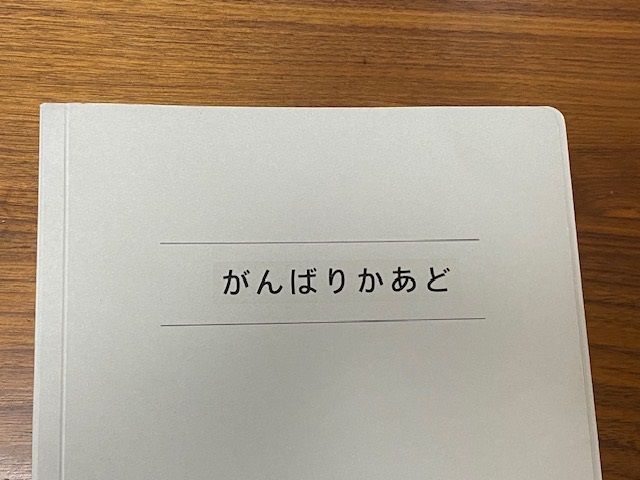 がんばりかあど